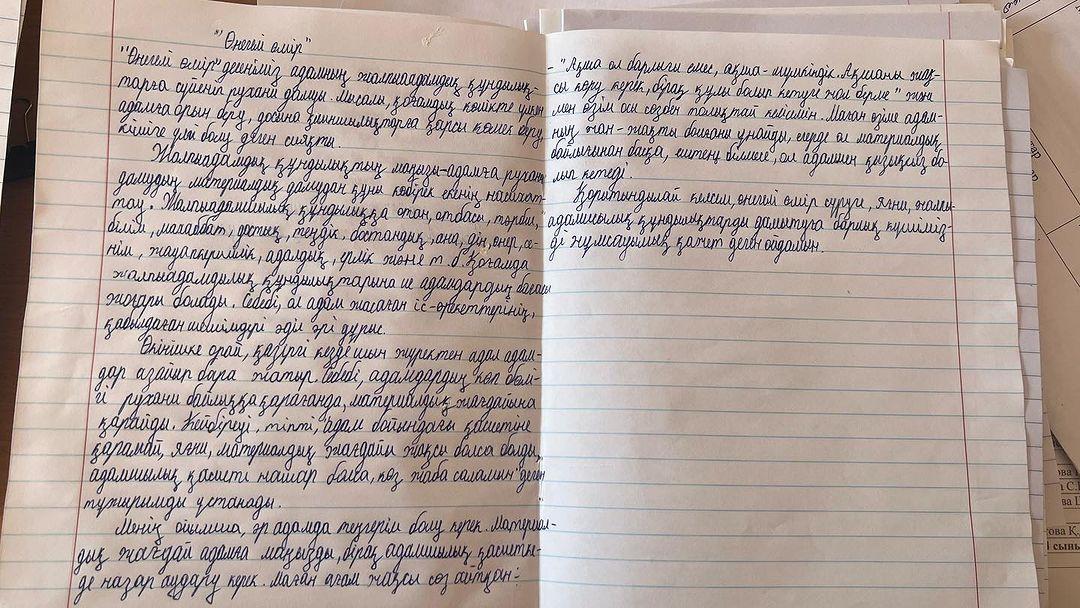 "Өнегелі өмір"
"Өнегелі өмір" дегеніміз адамның жалпыадамдық құндылық-
тарға сүйеніп рухани дамуы. Мысалы, қоғамдық көлікте үлкен
адамға орын беру, досына қиыншылықтарға қарсы көмек беру,
кішіге үлгі болу деген сияқты.
Жалпыадамдық құндылықтың маңызы-адамға рухани
дамудың материалдық дамудан құны көбірек екенін насихат-
тау. Жалпыадамшылық құндылыққа отан, отбасы, тәрбие,
білім, махаббат, достық, теңдік, бостандық, ана, дін, өнер, се-
нім, жауапкершілік, адалдық, ерлік және т.б. Қоғамда
жалпыадамдылық құндылықтарына ие адамдардың бағасы
жоғары болады. Себебі, ол адам жасаған іс-әрекеттерінің,
қабылдаған шешімдері әділ әрі дұрыс.
Өкінішке орай, қазіргі кезде шын жүректен адал адам-
дар азайып бара жатыр. Себебі, адамдардың көп бөлі-
гі рухани байлыққа қарағанда, материалдық жағдайына
қарайды. Кейбіреуі, тіпті, адам бойындағы қасиетіне
қарамай, яғни, материалдық жағдайы жақсы болса болды,
адамшылық қасиеті нашар болса, көз жаба саламын" деген
тұжырымды ұстанады.
Менің ойымша, әр адамда теңгерім болу керек. Материал-
дық жағдай адамға маңызды, бірақ, адамшылық қасиетке-
де назар аудару керек. Маған ағам жақсы сөз айтқан:
- "Ақша ол барлығы емес, ақша - мүмкіндік. Ақшаны жақ-
сы көру керек, бірақ құлы болып кетуге жол берме" және
мен өзім осы сөзбен толықтай келісемін. Маған өзіме адам-
ның жан-жақты болғаны ұнайды, егерде ол материалдық
байлығынан басқа, ештеңе білмесе, ол адаммен қызықсыз бо-
лып кетеді.
Қорытындылай келсем, өнегелі өмір сүруге, яғни, жалпы-
адамшылық құндылықтарды дамытуға барлық күшіміз-
ді жұмсауылық қажет деген ойдамын.